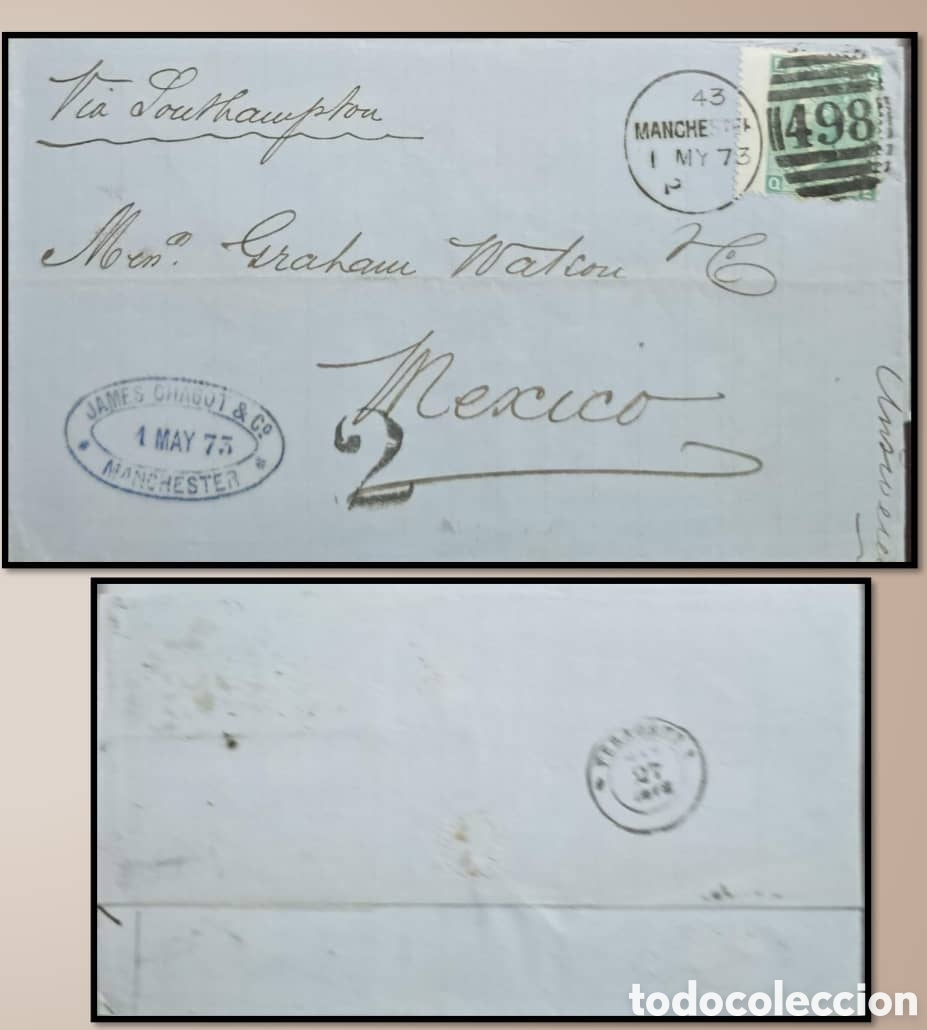 Via Southampton
43
MANCHESTER
1 MY 73
2
498
Q
Mess. Graham Watson & Co
Mexico
2
JAMES CHABOT & Co
1 MAY 73
MANCHESTER
27
todocoleccion